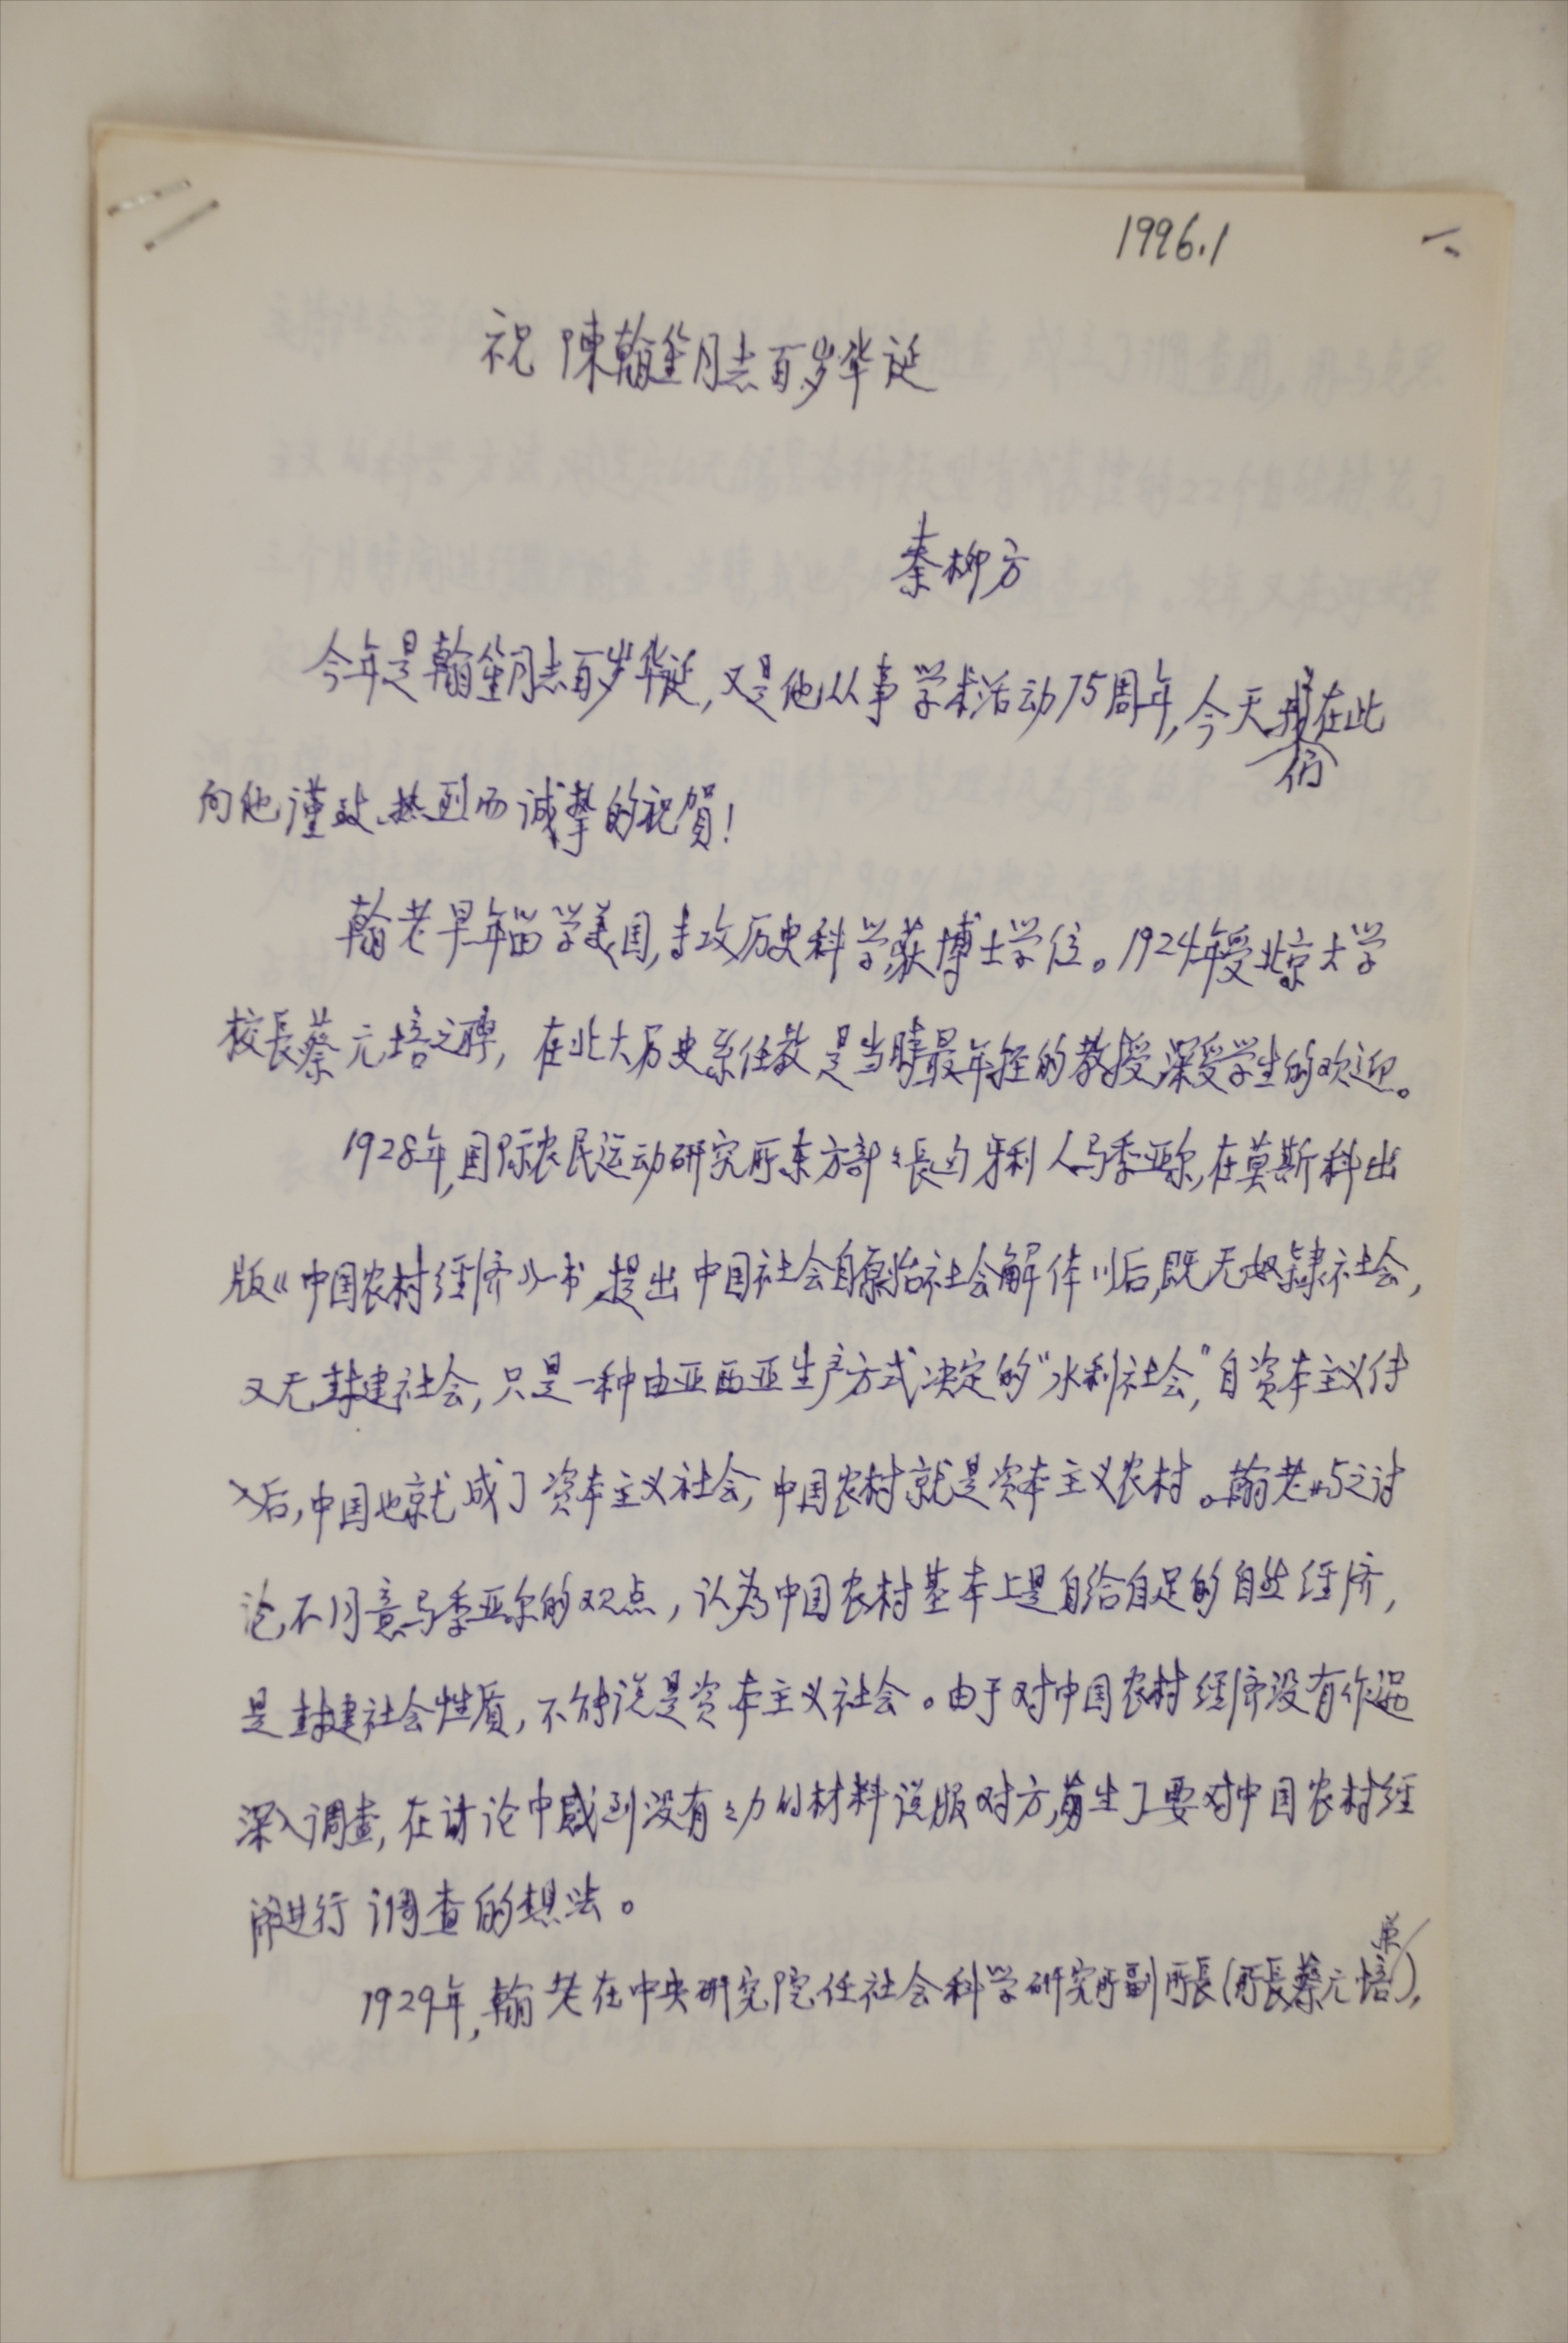 1996.1
祝陳翰笙同志百岁华诞
秦柳方
今年是翰笙同志百岁华诞,又是他从事学术活动75周年,今天我们在此
向他谨致热烈而诚挚的祝賀!
翰老早年留学美国,专攻历史科学,获博士学位。1924年受北京大学
校長蔡元培之聘,在北大历史系任教是当時最年轻的教授深受学生的欢迎。
1928年,国际农民运动研究所东方部々長匈牙利人马季亚尔,在莫斯科出
版《中国农村经济》一书,提出中国社会自原始社会解体以后,既无奴隸社会,
又无封建社会,只是一种由亚西亚生产方式决定的“水利社会,”自资本主义传
入后,中国也就成了资本主义社会,中国农村就是资本主义农村。翰老与之讨
论,不同意马季亚尔的观点,认为中国农村基本上是自给自足的自然经济,
是封建社会性质,不能说是资本主义社会。由于对中国农村经济没有作过
深入调查,在讨论中感到没有力的材料说服对方,萌生了要对中国农村经
济进行调查的想法。
1929年,翰老在中央研究院任社会科学研究所副所長(所長蔡元培兼),